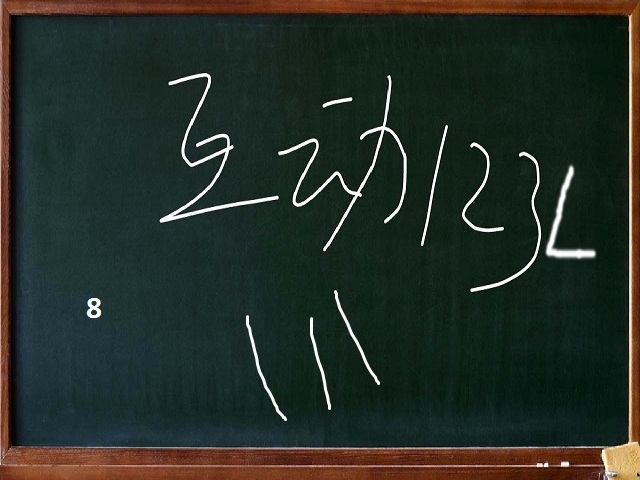 互动123L
8
\\\